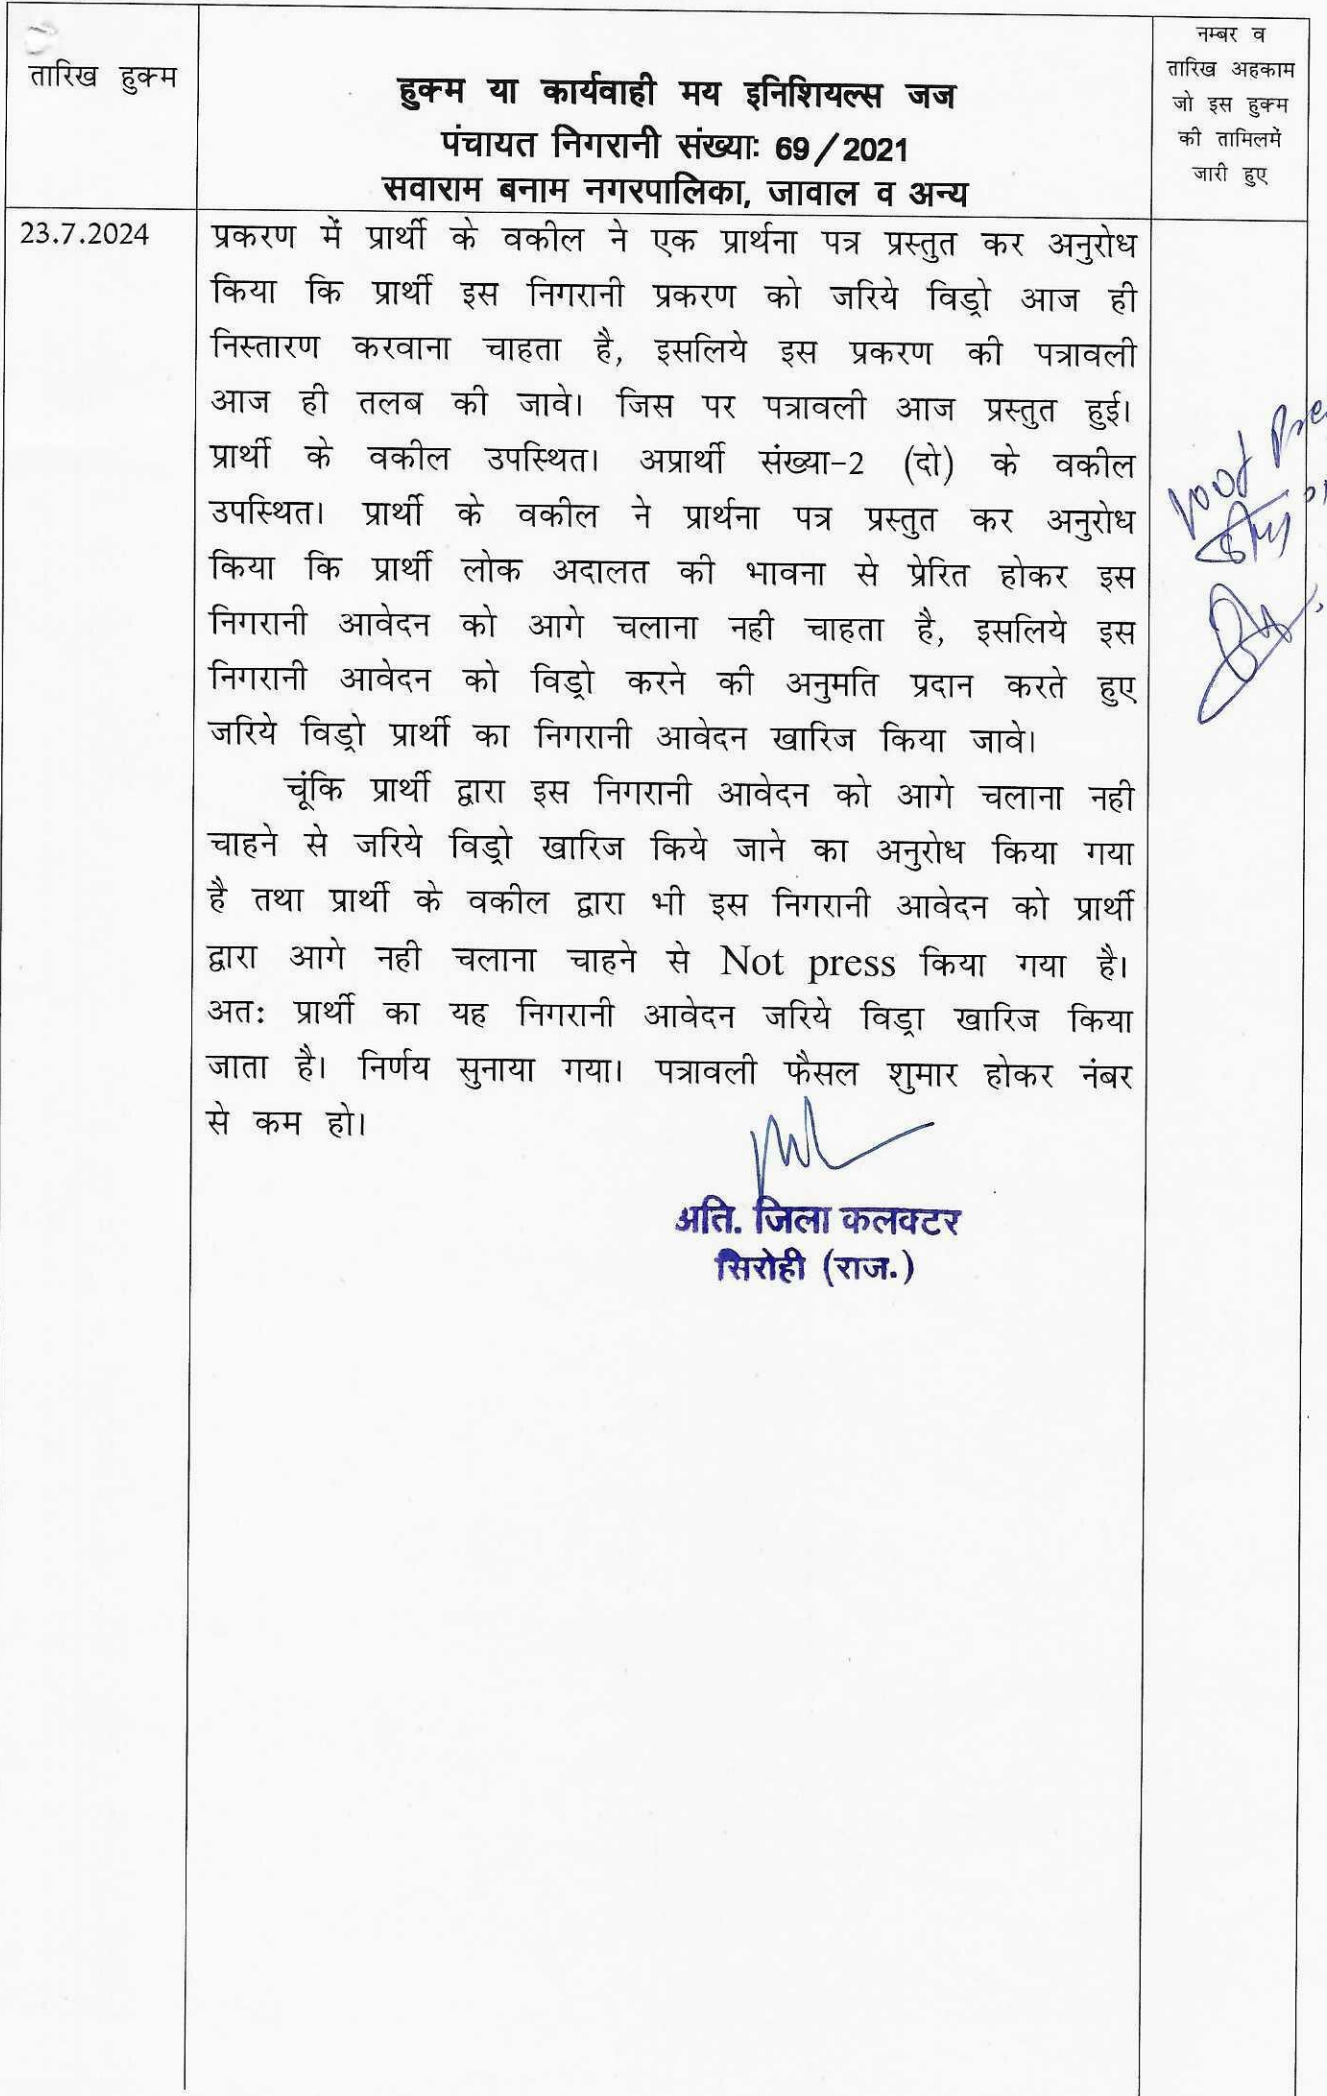 तारिख हुक्म
हुक्म या कार्यवाही मय इनिशियल्स जज
पंचायत निगरानी संख्याः 69/2021
सवाराम बनाम नगरपालिका, जावाल व अन्य
नम्बर व
तारिख अहकाम
जो इस हुक्म
की तामिलमें
जारी हुए
23.7.2024
प्रकरण में प्रार्थी के वकील ने एक प्रार्थना पत्र प्रस्तुत कर अनुरोध
किया कि प्रार्थी इस निगरानी प्रकरण को जरिये विड्रो आज ही
निस्तारण करवाना चाहता है, इसलिये इस प्रकरण की पत्रावली
आज ही तलब की जावे। जिस पर पत्रावली आज प्रस्तुत हुई।
प्रार्थी के वकील उपस्थित। अप्रार्थी संख्या-2 (दो) के वकील
उपस्थित। प्रार्थी के वकील ने प्रार्थना पत्र प्रस्तुत कर अनुरोध
किया कि प्रार्थी लोक अदालत की भावना से प्रेरित होकर इस
निगरानी आवेदन को आगे चलाना नही चाहता है, इसलिये इस
निगरानी आवेदन को विड्रो करने की अनुमति प्रदान करते हुए
जरिये विड्रो प्रार्थी का निगरानी आवेदन खारिज किया जावे।
चूंकि प्रार्थी द्वारा इस निगरानी आवेदन को आगे चलाना नही
चाहने से जरिये विड्रो खारिज किये जाने का अनुरोध किया गया
है तथा प्रार्थी के वकील द्वारा भी इस निगरानी आवेदन को प्रार्थी
द्वारा आगे नही चलाना चाहने से Not press किया गया है।
अतः प्रार्थी का यह निगरानी आवेदन जरिये विड्रा खारिज किया
जाता है। निर्णय सुनाया गया। पत्रावली फैसल शुमार होकर नंबर
से कम हो।
अति. जिला कलक्टर
सिरोही (राज.)